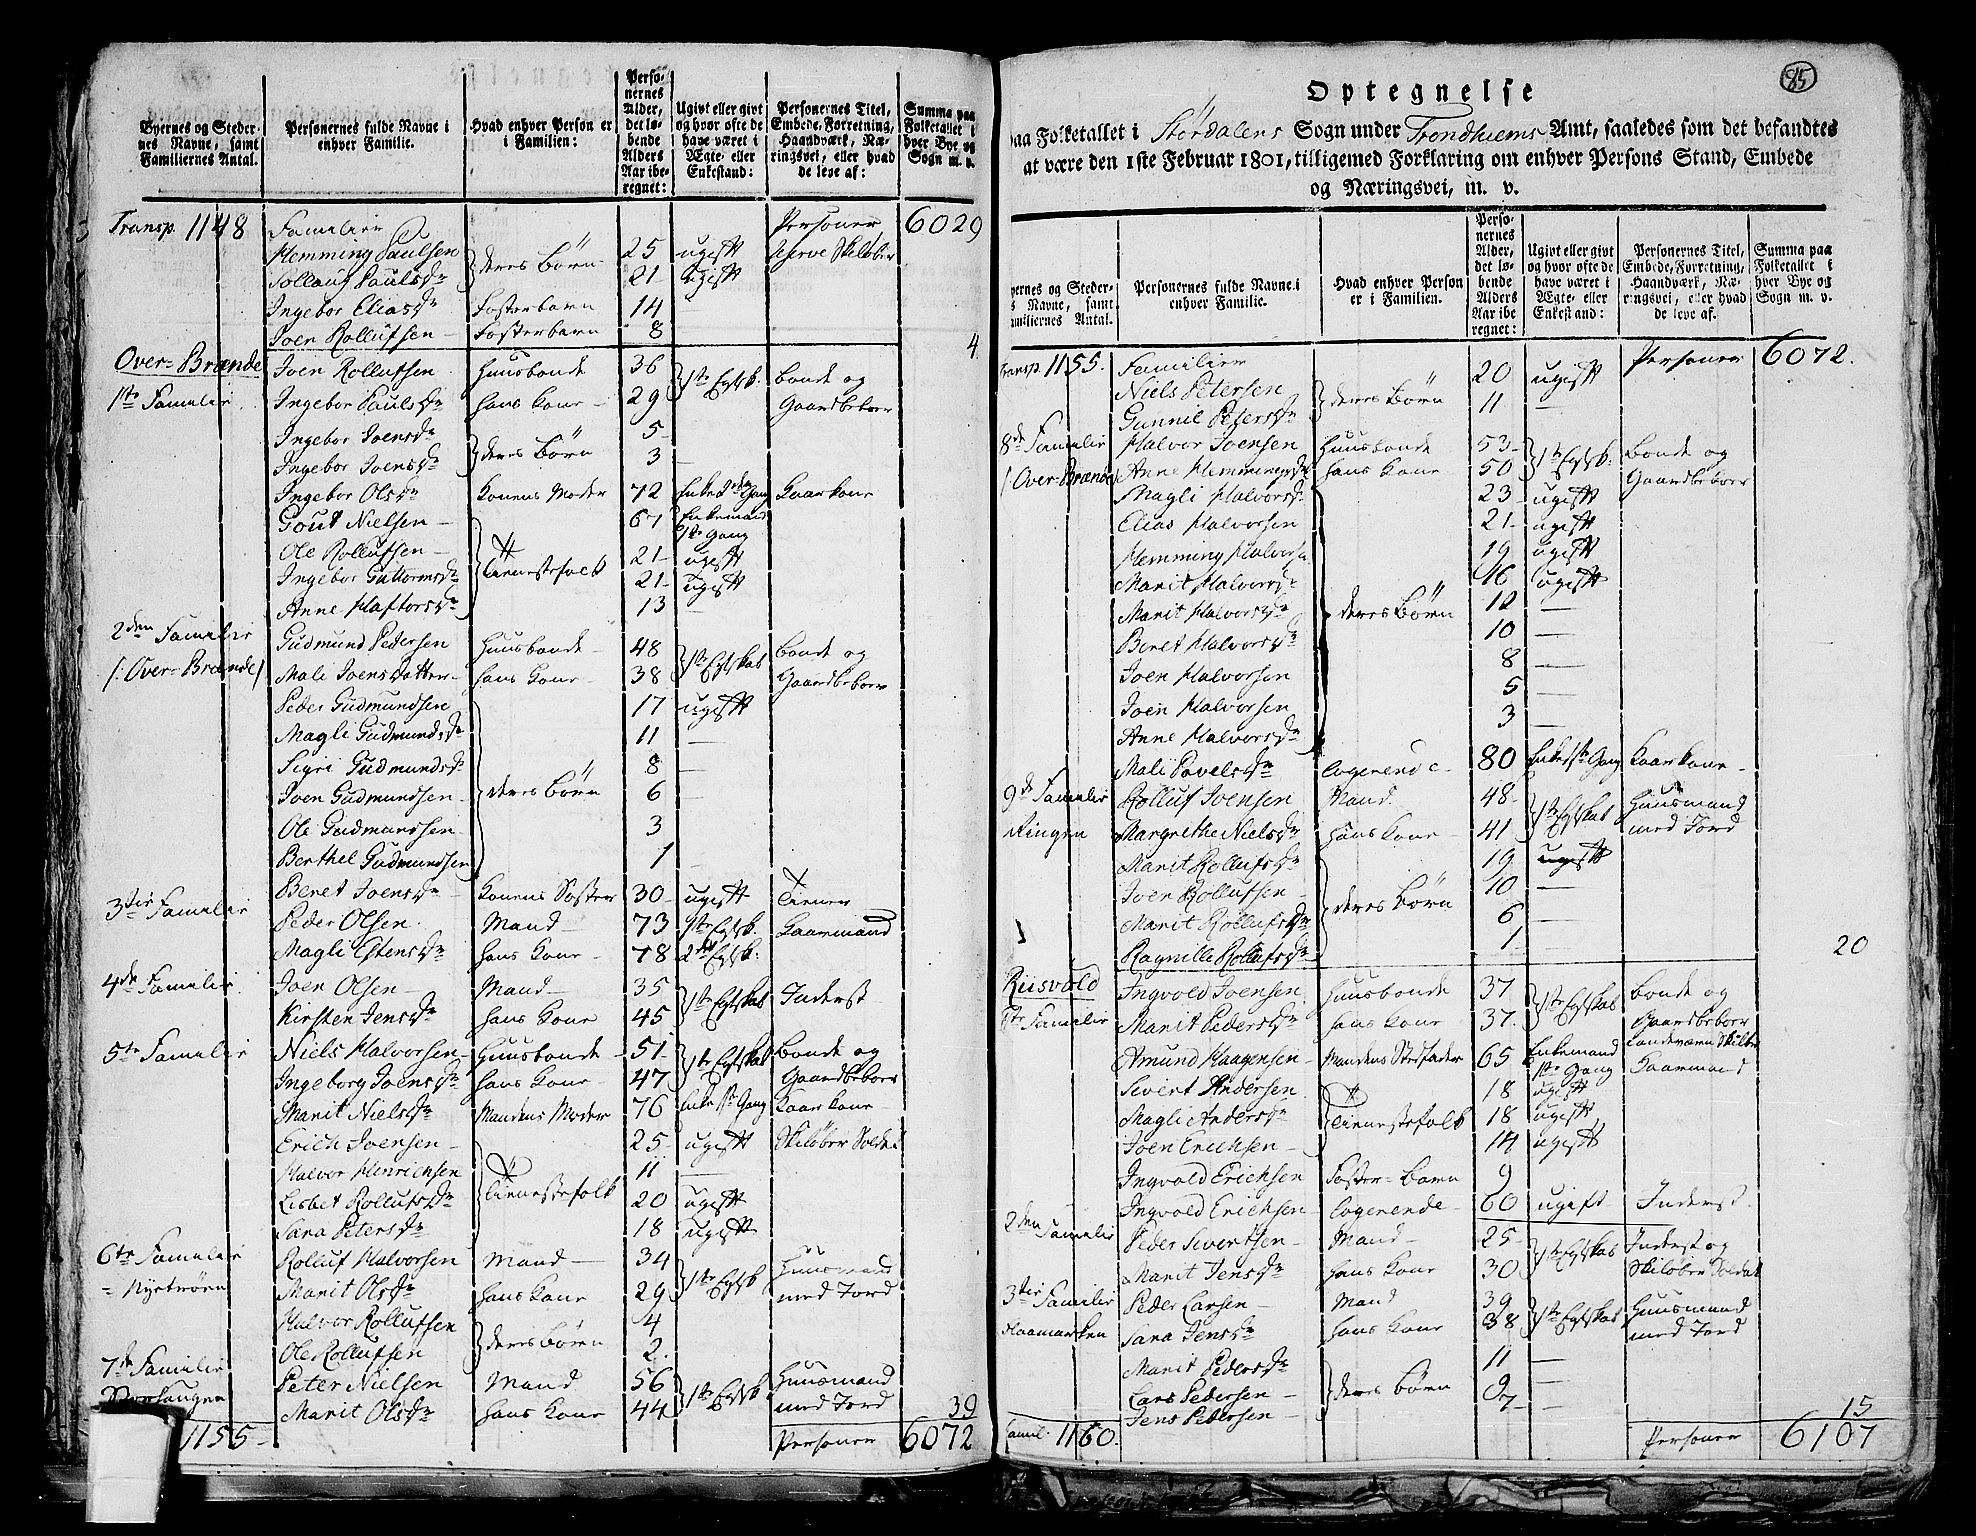 Byernes og Steder-
nes Navne, samt
Familiernes Antal.
Personernes fulde Navne i
enhver Familie.
Hvad enhver Person er
i Familien:
Perso-
nernes
Alder,
det lø-
bende
Alders
Aar ibe-
regnet:
Ugivt eller givt
og hvor ofte de
have været i
Ægte- eller
Enkestand:
Personernes Titel,
Embede, Forretning,
Haandværk, Næ-
ringsvei, eller hvad
de leve af:
Summa paa
Folketallet i
hver Bye og
Sogn m. v.
Transp. 1148 Familier Personer 6029
Hemming Paulsen deres Børn 25 ugift Skiløber
Sollaug Paulsdr 21 ugift
Ingebor Eliasdr Fosterbarn 14 —
Joen Rollufsen Fosterbarn 8 4
Over-Brænde Joen Rollufsen Huusbonde 36 1ste Egtsk. Bonde og
1ste Familie Ingebor Paulsdr hans Kone 29 Gaardbeboer
Ingebor Joensdr deres Børn 5 —
Ingebor Joensdr 3 —
Ingebor Olsdr Konens Moder 72 Enke Gang Kaarkone
Gout Nielsen 67 Enkemand
1ste Gang
Ole Rollufsen Tienestefolk 21 ugift
Ingebor Guttormsdr 21 ugift
Anne Haftorsdr 13 —
2den Familie Gudmund Pedersen Huusbonde 48 1ste Egtskab Bonde og
/: Over-Brænde / Mali Joensdatter hans Kone 38 Gaardbeboer
Peder Gudmundsen 17 ugift
Magli Gudmundsdr 11 —
Sigri Gudmundsdr 8 —
Joen Gudmundsen deres Børn 6 —
Ole Gudmundsen 3
Berthel Gudmundsen 1 —
Beret Joensdr Konens Søster 30 ugift Tiener
3die Familie Peder Olsen Mand 73 1ste Egtsk. Kaarmand
Magli Estensdr hans Kone 78 2det Egtsk:
4de Familie Joen Olsen Mand 35 1ste Egtskab Inderst
Kirsten Jensdr hans Kone 45
5te Familie Niels Halvorsen Huusbonde 51 1ste Egtskab Bonde og
Ingeborg Joensdr hans Kone 47 Gaardbeboer
Marit Nielsdr Mandens Moder 76 Enke 1ste Gang Kaarkone
Erich Joensen 25 ugift Skiløber Soldat
Halvor Henrichsen Tienestefolk 11 —
Lisbet Rollufsdr 20 ugift
Sara Petersdr 18 ugift
6te Familie Rolluf Halvorsen Mand 34 1ste Egtsk Huusmand
Nystrøen Marit Olsdr hans Kone 29 med Jord
Halvor Rollufsen deres Børn 4
Ole Rollufsen 2.
7de Familie Peter Nielsen Mand 56 1ste Egtsk Huusmand
Marit Olsdr hans Kone 44 med Jord 39
1155 Personer 6072
85
Optegnelse
paa Folketallet i Størdalens Sogn under Trondhiems Amt, saaledes som det befandtes
at være den 1ste Februar 1801, tilligemed Forklaring om enhver Persons Stand, Embede
og Næringsvei, m. v.
yernes og Steder-
s Navne, samt
amiliernes Antal.
Personernes fulde Navne i
enhver Familie.
Hvad enhver Person
er i Familien.
Perso-
nernes
Alder,
det lø-
bende
Alders
Aar ibe
regnet:
Ugivt eller givt
og hvor ofte de
have været i
Ægte- eller
Enkestand:
Personernes Titel,
Embede, Forretning,
Haandværk, Næ-
ringsvei, eller hvad
de leve af.
Summa paa
Folketallet i
hver Bye og
Sogn m. v.
Transp. 1155. Familier Personer 6072.
Niels Petersen deres Børn 20 ugift
Gunnil Petersdr 11 —
8de Familie Halvor Joensen Huusbonde 53 1ste Egtsk. Bonde og
/: Over-Brænde / Anne Hemmingsdr hans Kone 50 Gaardbeboer
Magli Halvorsdr 23 ugift
Elias Halvorsen 21 ugift
Hemming Halvorsen 19 ugift
Marit Halvorsdr 16 ugift
Marit Halvorsdr deres Børn 12 —
Beret Halvorsdr 10 —
Joen Halvorsen 8 —
Joen Halvorsen 5 —
Anne Halvorsdr 3 —
Mali Povelsdr Logerende 80 Enke 1ste Gang Kaarkone
9de Familie Rolluf Joensen Mand 48 1ste Egtskab Huusmand
Ringen Margrethe Nielsdr hans Kone 41 med Jord
Marit Rollufsdr 19 ugift
Joen Rollufsen deres Børn 10 —
Marit Rollufsdr 6 —
Ragnille Rollufsdr 1 — 20
Riisvold Ingvold Joensen Huusbonde 37 1ste Egtskab Bonde og
1ste Familie Marit Pedersdr hans Kone 37. Gaardbeboer
Landeværn Skilber
Amund Haagensen Mandens Stedfader 65 Enkemand
1ste Gang Kaarmand
Sivert Andersen 18 ugift
Magli Andersdr Tienestefolk 18 ugift
Joen Erichsen 14 ugift
Ingvold Erichsen Foster-Barn 9
Ingvold Erichsen Logerende 60 ugift Inderst
2den Familie Peder Sivertsen Mand 25 1ste Egtskab Inderst og
Marit Jensdr hans Kone 30 Skiløber Soldat
3die Familie Peder Larsen Mand 39 1ste Egtskab Huusmand
Haamarken Sara Jensdr hans Kone 38 med Jord
Marit Pedersdr 11 —
Lars Pedersen deres Børn 9 —
Jens Pedersen 7 — 15
Famil. 1160. Personer 6107